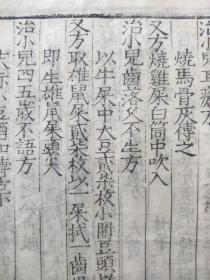 治小兒耳瘡方
燒馬骨灰傅之
又方燒雞屎白筒中吹入
治小兒齒落久不生方
以牛屎中大豆貳柒枚小開豆頭以
又方取雄鼠屎貳柒枚以一屎拭一齒
即生雄鼠屎頭尖
治小兒四五歲不語方
末赤小豆酒和傅舌下